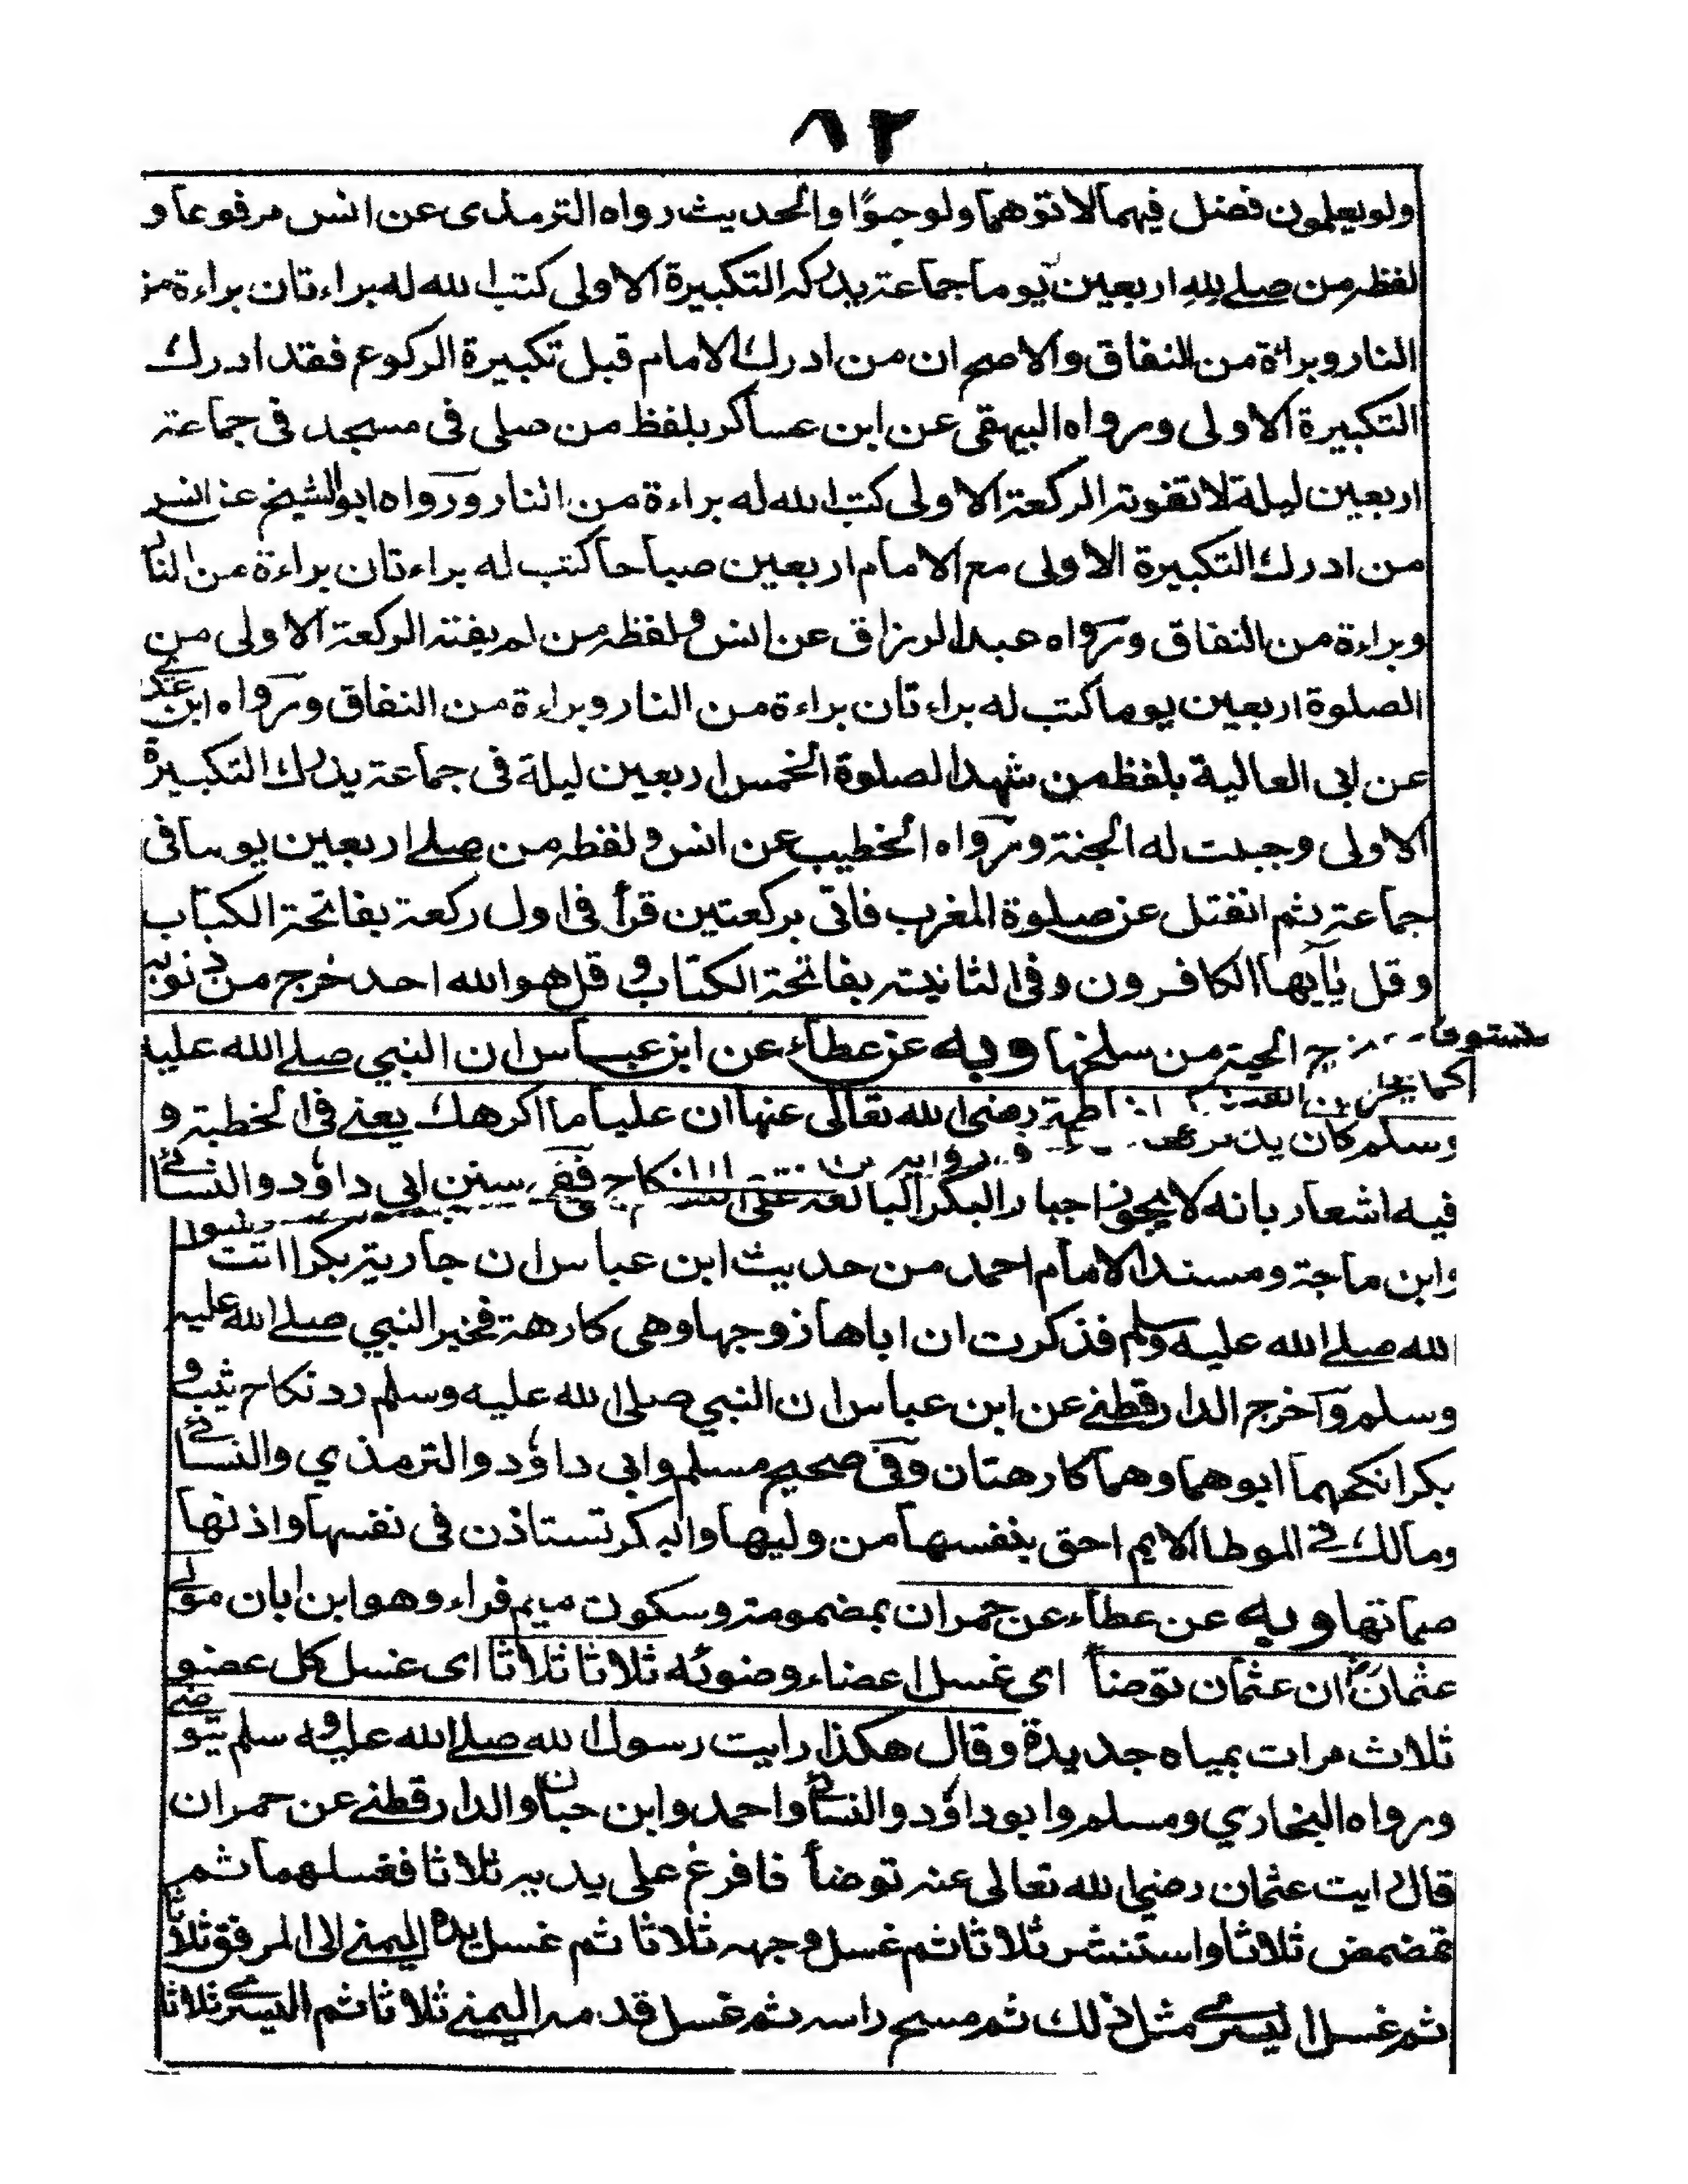 ٨٢
ولو يعلمون فضل فيهما لاتوهما ولو حبوًا والحديث رواه الترمذى عن انس مرفوعا و
لفظه من صلے لله اربعين يوما جماعة يدرك التكبيرة الاولى كتب الله له براءتان براءة من
النار وبرائة من النفاق والاصح ان من ادرك الامام قبل تكبيرة الركوع فقد ادرك
التكبيرة الاولى ورواه البيهقى عن ابن عساكر بلفظ من صلى فى مسجد فى جماعة
اربعين ليلة لا تفوته الركعة الاولى كتب الله له براءة من النار ورواه ابوالشيخ عن انس
من ادرك التكبيرة الاولى مع الامام اربعين صباحا كتب له براءتان براءة من النا
وبراءة من النفاق ورواه عبد الرزاق عن انس ولفظه من لم يفته الركعة الاولى من
الصلوة اربعين يوما كتب له براءتان براءة من النار وبراءة من النفاق ورواه ابن عدے
عن ابى العالية بلفظ من شهد الصلوة الخمس اربعين ليلة فى جماعة يدرك التكبيرة
الاولى وجبت له الجنة ورواه الخطيب عن انس ولفظه من صلے اربعين يوما فى
جماعة ثم انفتل عن صلوة المغرب فاتى بركعتين قرأ فى اول ركعة بفاتحة الكتاب
وقل يآيها الكافرون وفى الثانية بفاتحة الكتاب وقل هو الله احد خرج من ذنوبه
كما يخرج الحية من سلخها وبه عن عطاء عن ابن عباس ان النبي صلے الله عليه
وسلم كان فاطمة رضى الله تعالى عنها ان عليا ما اكرهك يعنے فى الخطبة و
فيه اشعار بانه لا يجوز اجبار البكر البالغة على النكاح ففى سنن ابى داؤد والنسائے
وابن ماجة ومسند الامام احمد من حديث ابن عباس ان جارية بكرا اتت رسول
الله صلے الله عليه وسلم فذكرت ان اباها زوجها وهى كارهة فخير النبي صلے الله عليه
وسلم واخرج الدارقطنے عن ابن عباس ان النبي صلى الله عليه وسلم رد نكاح ثيب و
بكر انكحهما ابوهما وهما كارهتان وفى صحيح مسلم وابى داؤد والترمذي والنسائے
ومالك فے الموطا الايم احق بنفسها من وليها والبكر تستاذن فى نفسها واذنها
صماتها وبه عن عطاء عن حمران بمضمومة وسكون ميم فراء وهو ابن ابان مولے
عثمان ان عثمان توضأ اى غسل اعضاء وضوئه ثلاثا ثلاثا اى غسل كل عضو
ثلاث مرات بمياه جديدة وقال هكذا رايت رسول الله صلے الله عليه وسلم يتوضے
ورواه البخاري ومسلم وابوداؤد والنسائے واحمد وابن حبان والدارقطنے عن حمران
قال رايت عثمان رضي الله تعالى عنه توضأ فافرغ على يديه ثلاثا فغسلهما ثم
تمضمض ثلاثا واستنشر ثلاثا ثم غسل وجهه ثلاثا ثم غسل يده اليمنے الى المرفق ثلاثا
ثم غسل اليسرے مثل ذلك ثم مسح راسه ثم غسل قدمه اليمنے ثلاثا ثم اليسرے ثلاثا